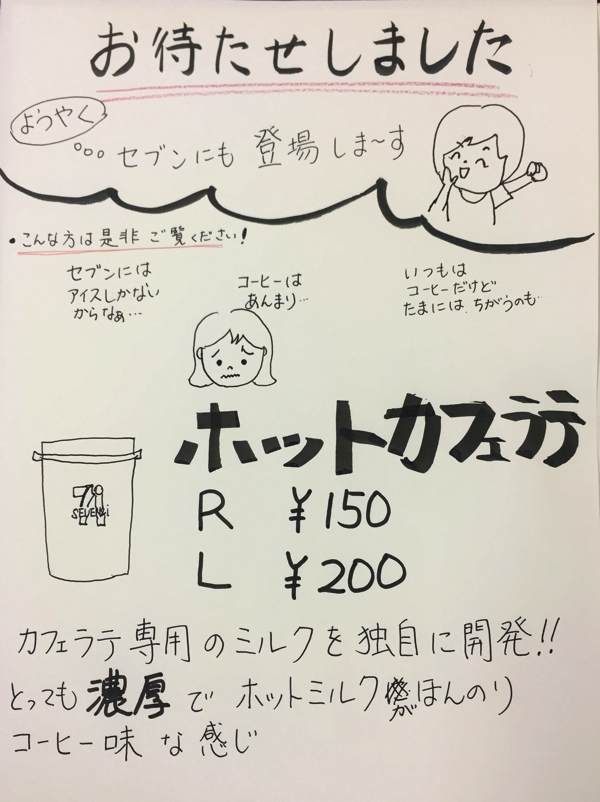 お待たせしました
ようやく
セブンにも 登場しま〜す
・こんな方は是非ご覧ください!
セブンには
アイスしかない
からなぁ…
コーヒーは
あんまり…
いつもは
コーヒーだけど
たまには、ちがうのも…
ホットカフェラテ
R ¥150
L ¥200
カフェラテ専用のミルクを独自に開発!!
とっても濃厚で ホットミルクがほんのり
コーヒー味な感じ